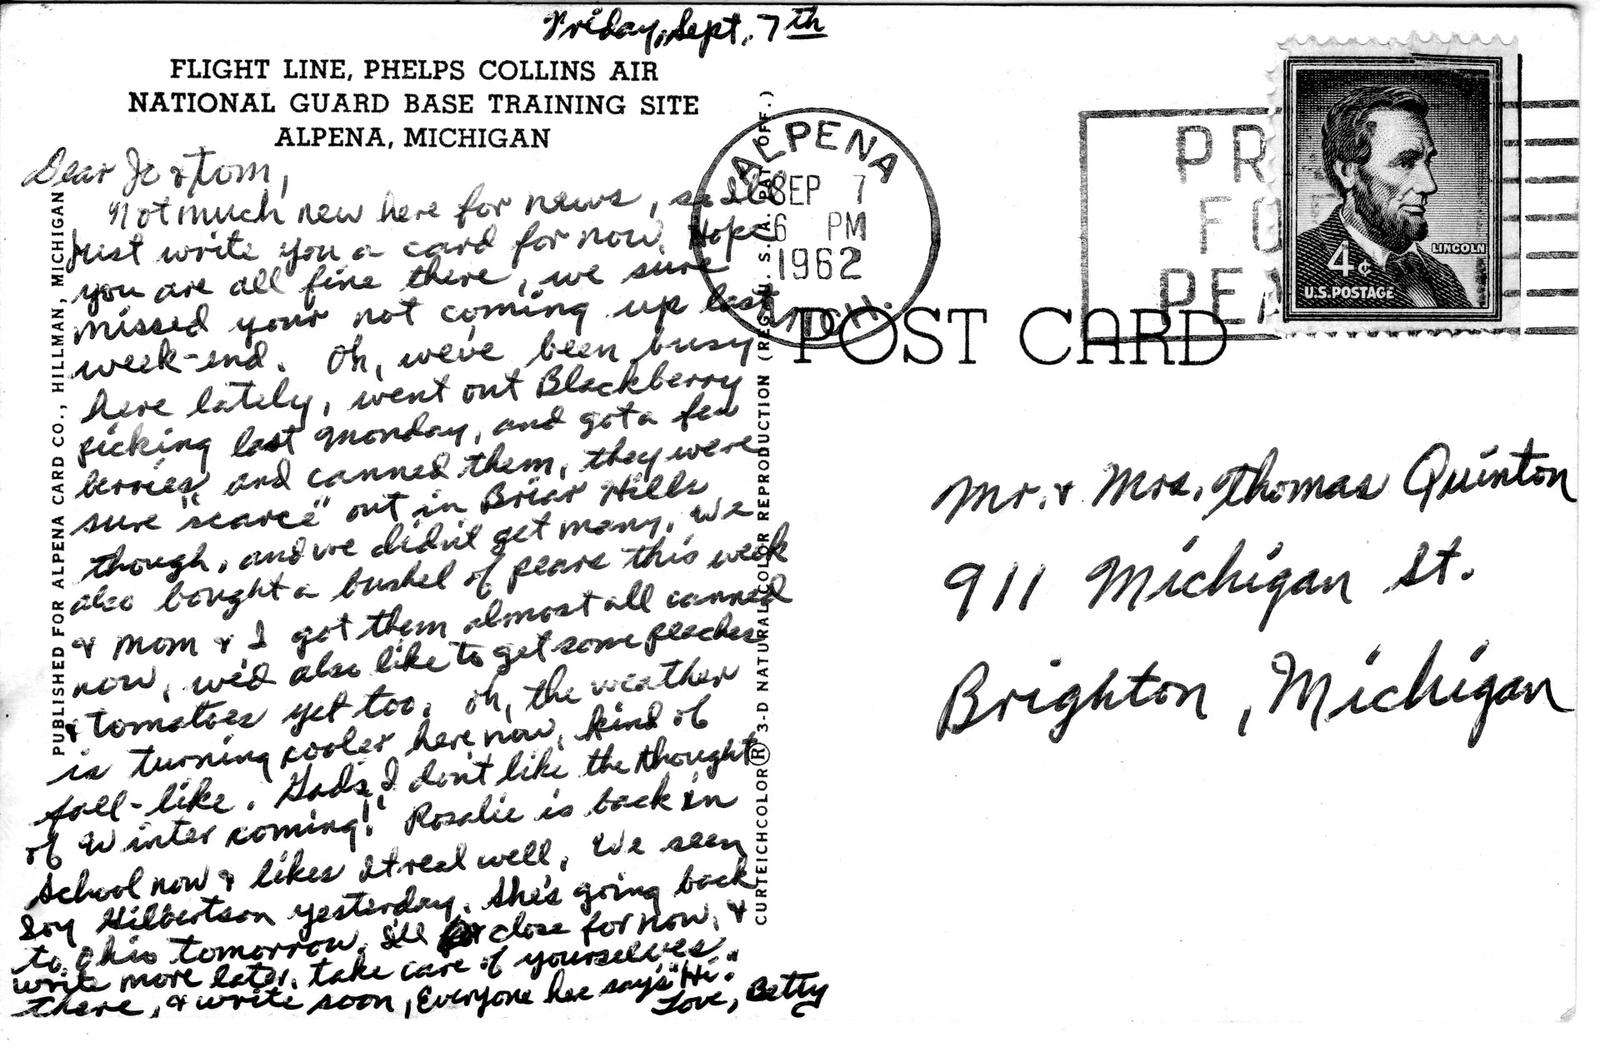 Friday, Sept. 7th
FLIGHT LINE, PHELPS COLLINS AIR
NATIONAL GUARD BASE TRAINING SITE
ALPENA, MICHIGAN
Dear Jo & Tom,
Not much new here for news, so I'll
Just write you a card for now. Hope
you are all fine there, we sure
missed your not coming up last
week-end. Oh, we've been busy
here lately, went out Blackberry
picking last Monday, and got a few
berries, and canned them, they were
sure "scarce" out in Briar Hills
though, and we didn't get many. We
also bought a bushel of pears this week
& Mom & I got them almost all canned
now, we'd also like to get some peaches
& tomatoes yet too. Oh, the weather
is turning cooler here now, kind of
fall-like. Gads, I don't like the thought
of Winter coming!! Rosalie is back in
School now & likes It real well. We seen
Joy Hilbertson yesterday. She's going back
to Ohio tomorrow. I'll close for now, &
write more later, take care of yourselves
there, & write soon, Everyone here says "Hi."
Love, Betty
PUBLISHED FOR ALPENA CARD CO., HILLMAN, MICHIGAN
CURTEICHCOLOR® 3-D NATURAL COLOR REPRODUCTION (REG. U. S. A. PAT. OFF.)
ALPENA
SEP 7
6 PM
1962
MICH.
PR
FO
PEA
4¢
LINCOLN
U.S. POSTAGE
POST CARD
Mr. & Mrs. Thomas Quinton
911 Michigan St.
Brighton, Michigan